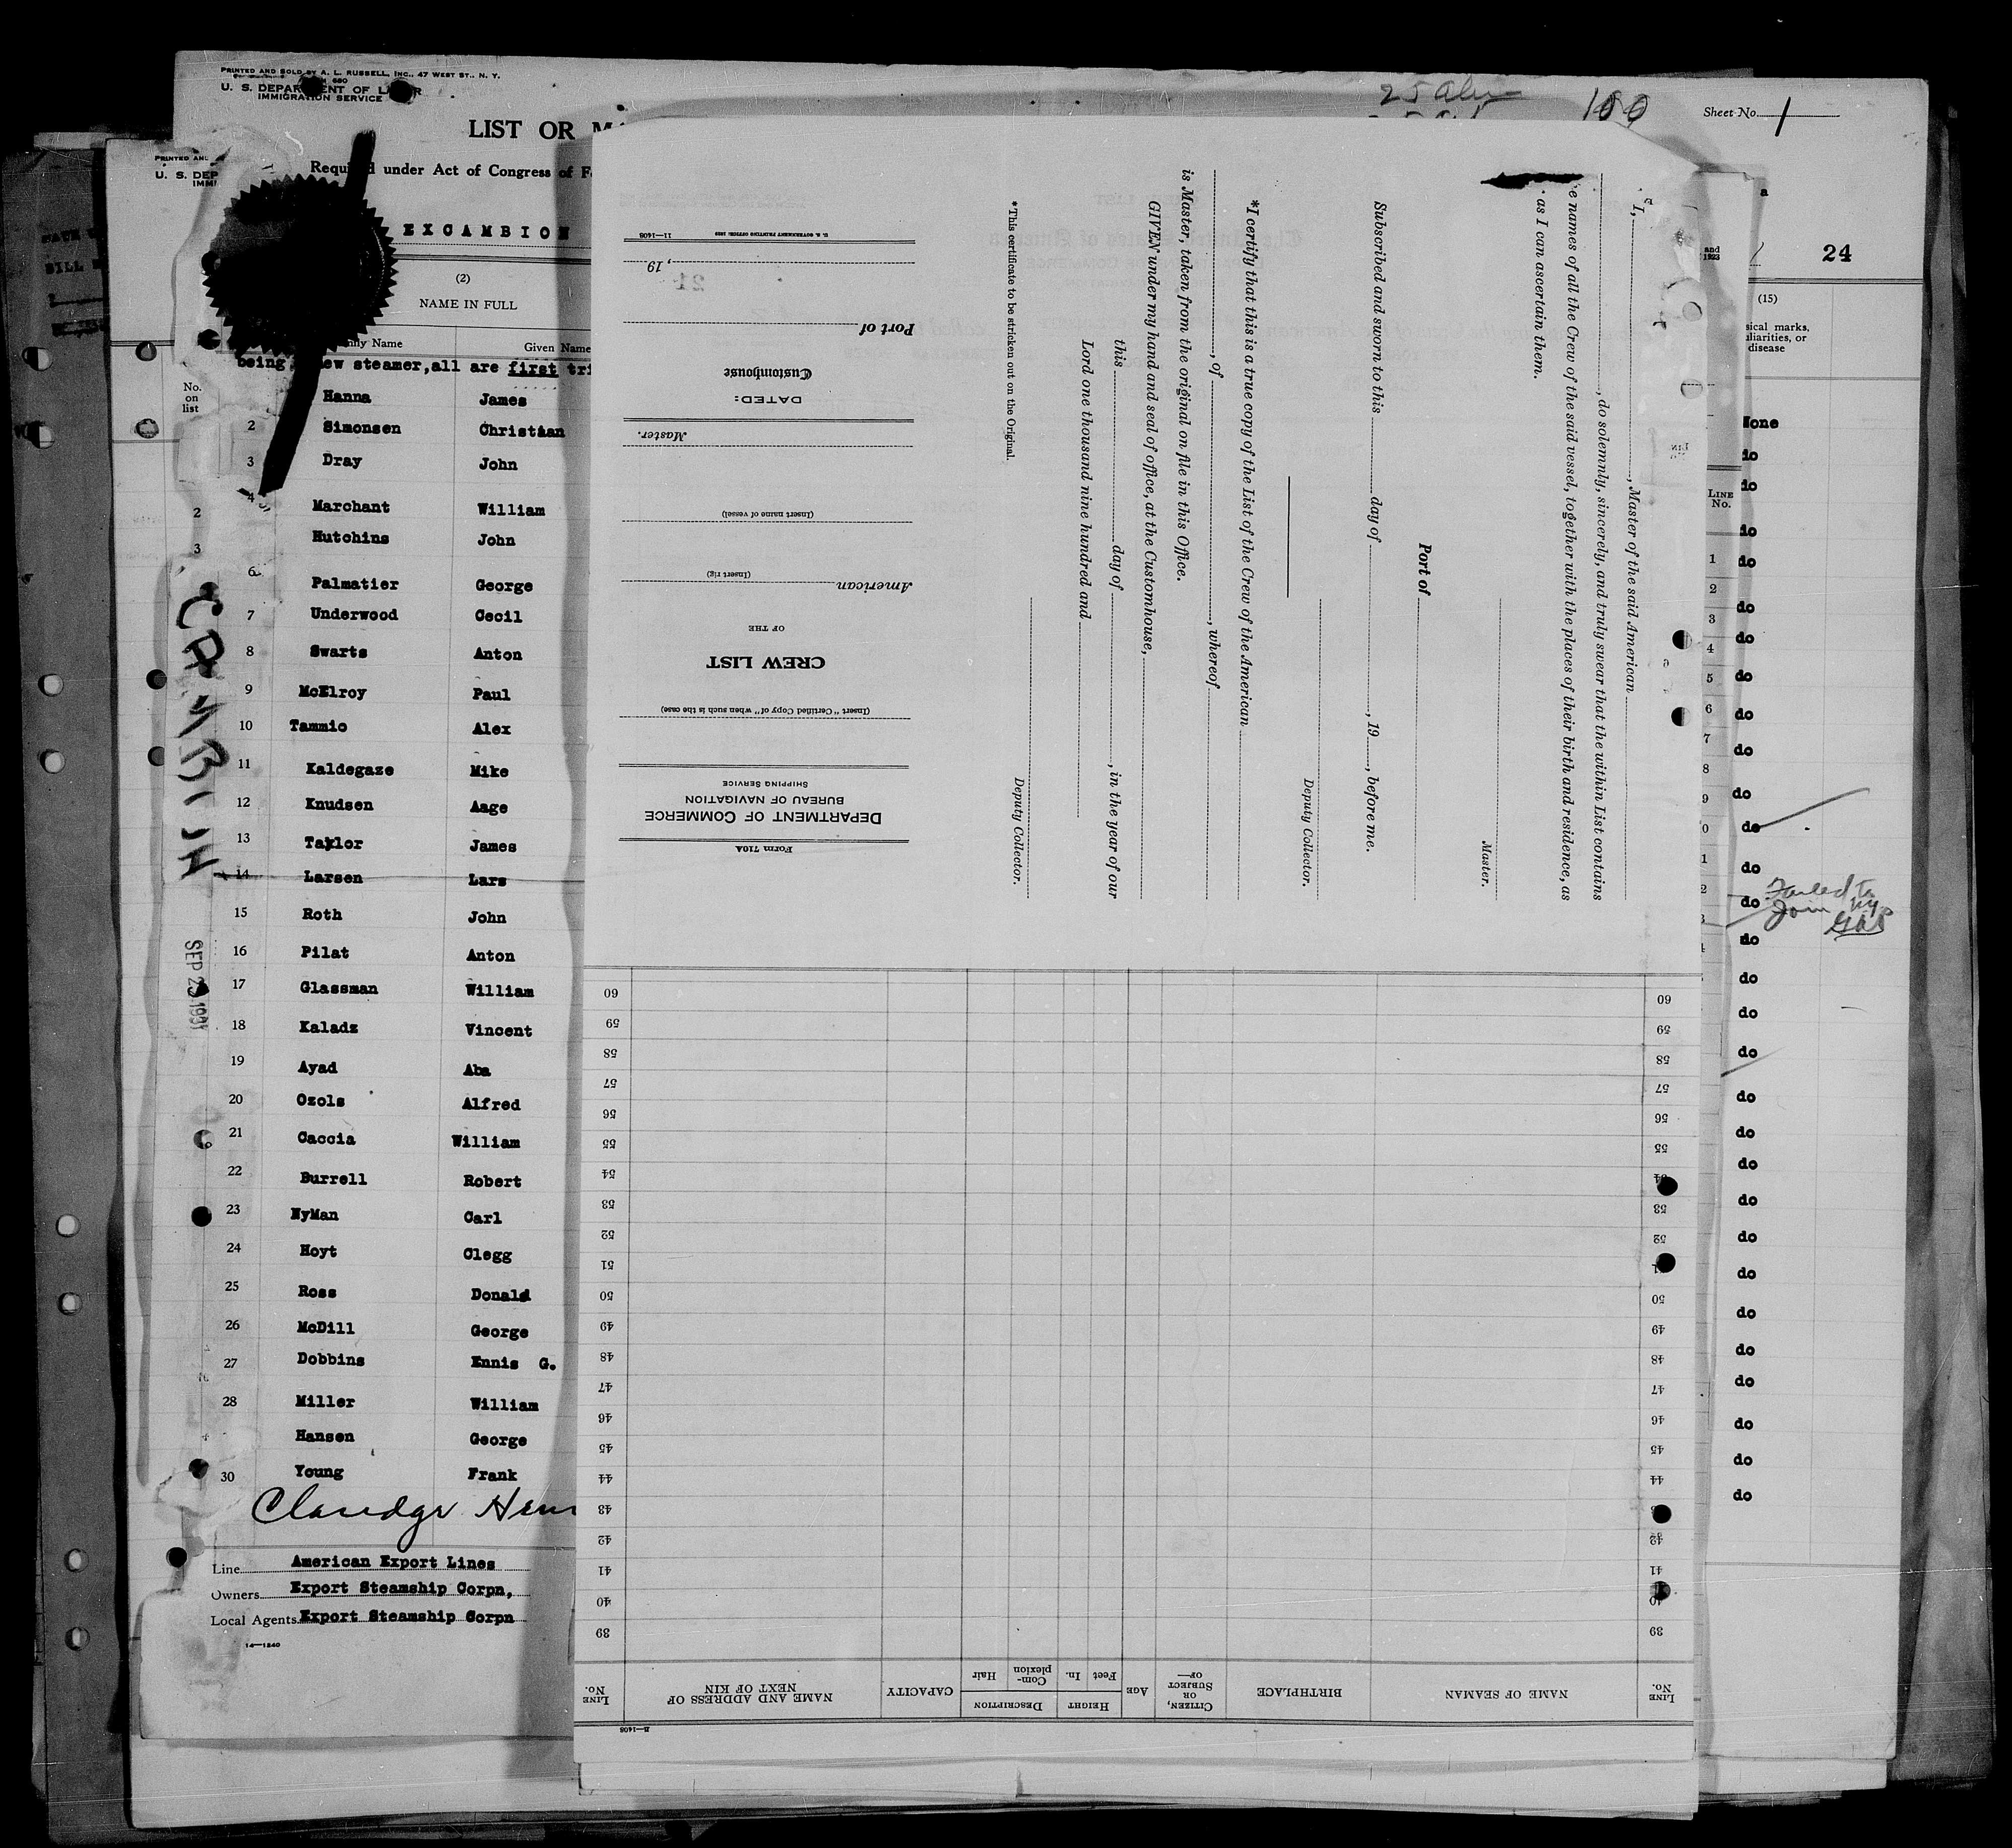 PRINTED AND SOLD BY A. L. RUSSELL, INC., 47 WEST ST., N. Y.
U. S. DEPARTMENT OF LABOR
IMMIGRATION SERVICE
LIST OR
Required under Act of Congress of
100
Sheet No. 1
PRINTED AND
U. S. DEP
IMMI
EXCAMBION
24
(2)
NAME IN FULL
Family Name
Given Name
being new steamer, all are first
No. on list
Hanna James
2 Simonsen Christian
3 Dray John
4 Marchant William
Hutchins John
6 Palmatier George
7 Underwood Cecil
8 Swarts Anton
9 McElroy Paul
10 Tammio Alex
11 Kaldegaze Mike
12 Knudsen Aage
13 Taylor James
14 Larsen Lars
15 Roth John
16 Pilat Anton
17 Glassman William
18 Kaladz Vincent
19 Ayad Aba
20 Ozols Alfred
21 Caccia William
22 Burrell Robert
23 NyMan Carl
24 Hoyt Clegg
25 Ross Donald
26 McDill George
27 Dobbins Ennis G.
28 Miller William
Hansen George
30 Young Frank
Line American Export Lines
Owners Export Steamship Corpn,
Local Agents Export Steamship Corpn
14—1240
SEP 23 1931
I, , Master of the said American
, do solemnly, sincerely, and truly swear that the within List contains
e names of all the Crew of the said vessel, together with the places of their birth and residence, as
as I can ascertain them.
Master.
Port of
Subscribed and sworn to this day of , 19 , before me.
Deputy Collector.
*I certify that this is a true copy of the List of the Crew of the American
, of , whereof
is Master, taken from the original on file in this Office.
GIVEN under my hand and seal of office, at the Customhouse,
this day of , in the year of our
Lord one thousand nine hundred and
Deputy Collector.
*This certificate to be stricken out on the Original.
Form 710A
DEPARTMENT OF COMMERCE
BUREAU OF NAVIGATION
SHIPPING SERVICE
(Insert "Certified Copy of" when such is the case)
CREW LIST
OF THE
American
(Insert rig)
(Insert name of vessel)
Master.
DATED:
Customhouse
Port of
, 19
U. S. GOVERNMENT PRINTING OFFICE: 1928 11—1408
LINE No.
NAME OF SEAMAN
BIRTHPLACE
CITIZEN, OR SUBJECT OF—
AGE
HEIGHT
Feet In.
DESCRIPTION
Complexion Hair
CAPACITY
NAME AND ADDRESS OF NEXT OF KIN
LINE No.
39
40
41
42
43
44
45
46
47
48
49
50
51
52
53
54
55
56
57
58
59
60
(15)
sical marks,
uliarities, or
disease
LINE No.
1
2
3
4
5
6
7
8
9
None
do
do
do
do
do
do
do
do
do
do
do
do
do
do
do
do
do
do
do
do
do
do
do
do
do
do
do
do
do
Failed to
Join